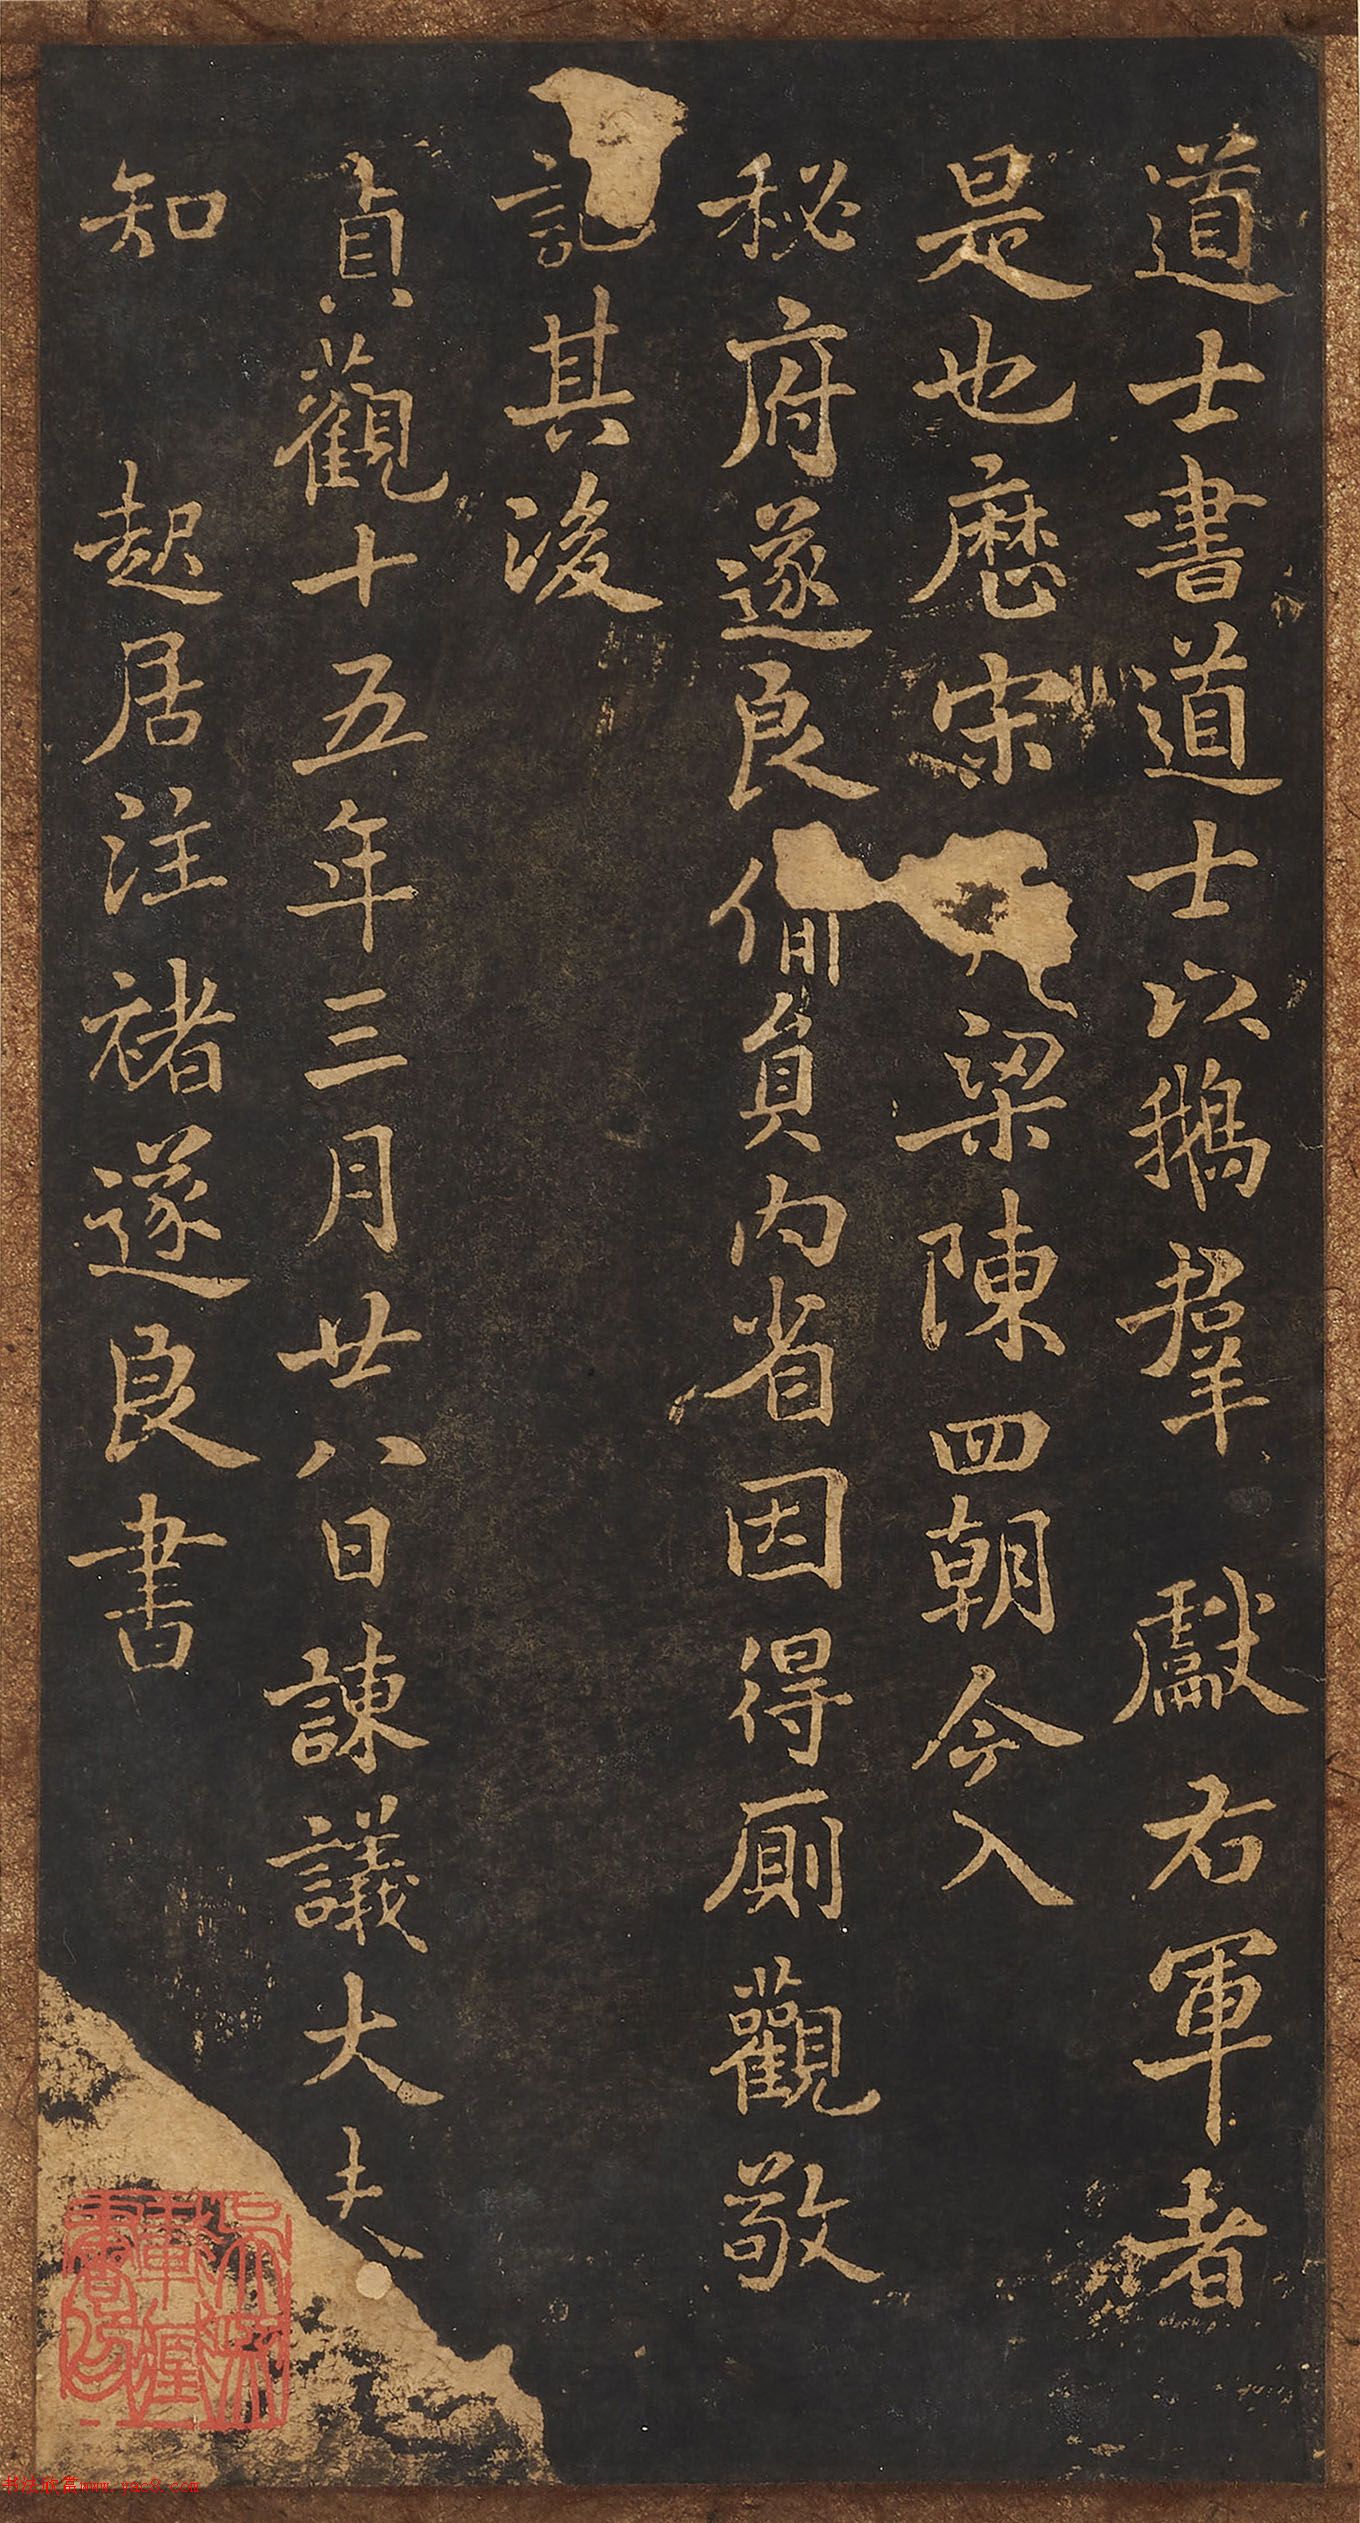 道士書道士以鵝羣獻右軍者
是也厯宋梁陳四朝今入
秘府遂良備員內省因得廁觀敬
記其後
貞觀十五年三月廿八日諫議大夫
知起居注褚遂良書
书法欣赏www.yac8.com